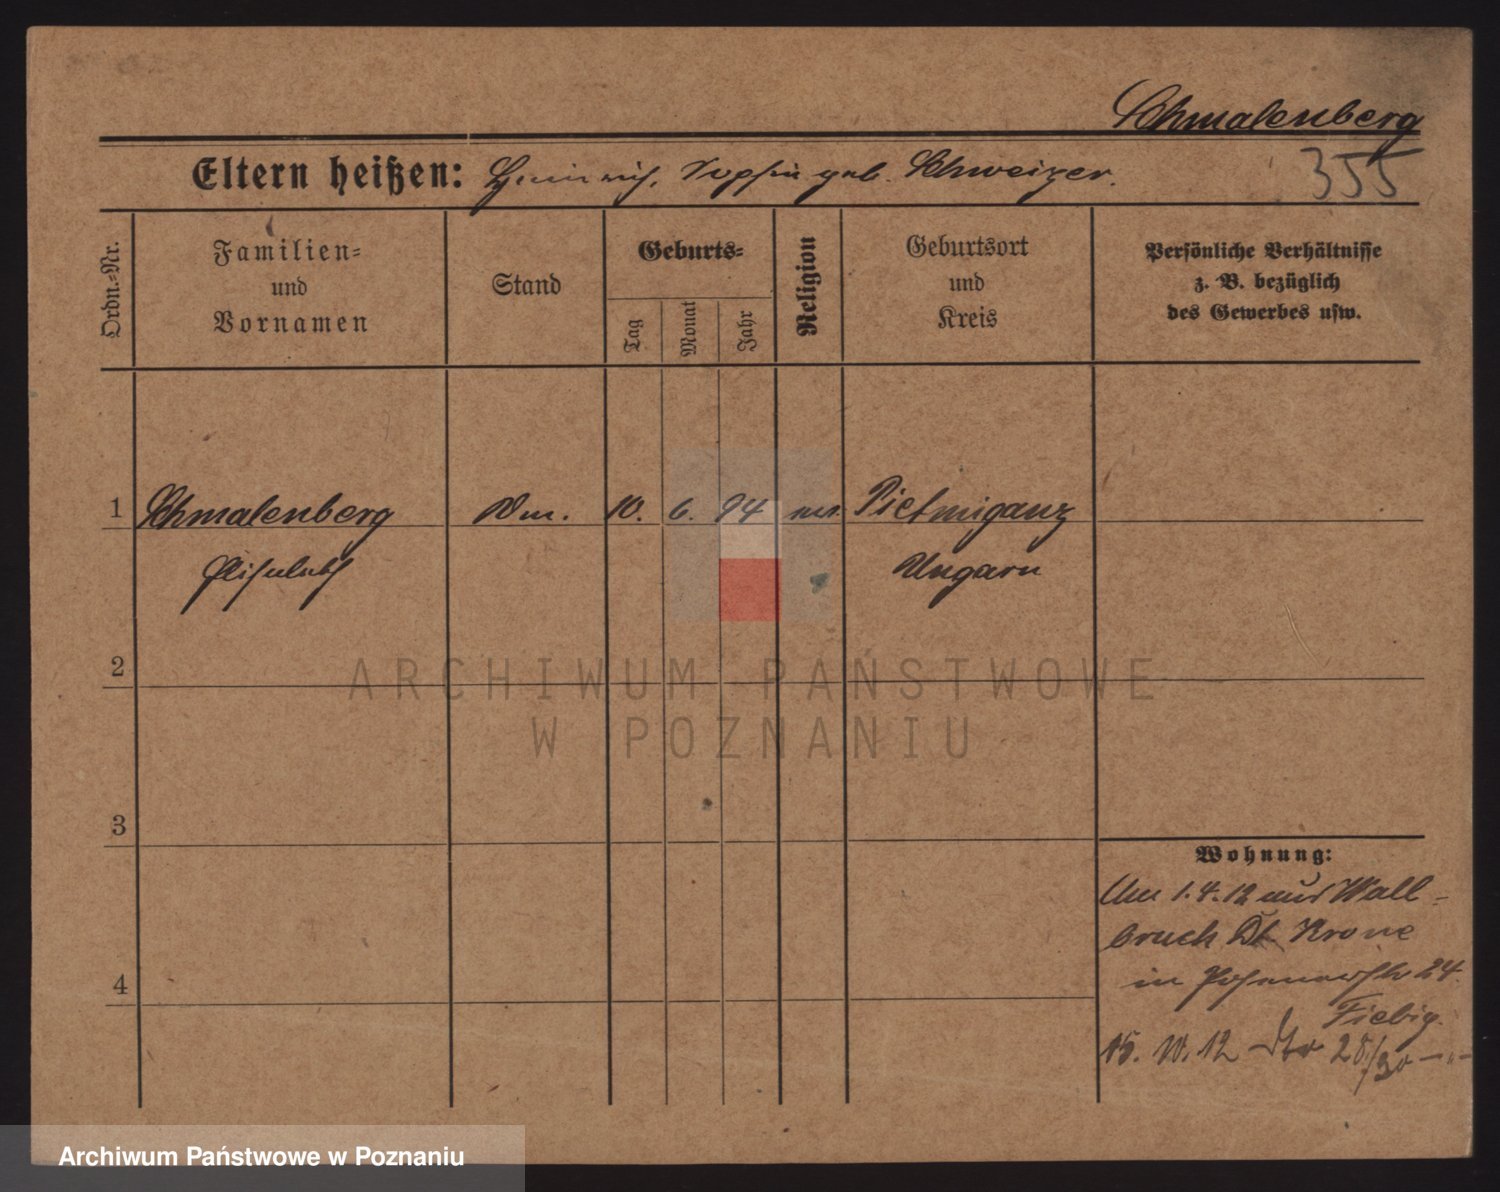 Schmalenberg
Eltern heißen: Heinrich, Sophie geb. Schweizer.
355
Ordn.-Nr.
Familien-
und
Vornamen
Stand
Geburts-
Tag
Monat
Jahr
Religion
Geburtsort
und
Kreis
Persönliche Verhältnisse
z. B. bezüglich
des Gewerbes usw.
1 Schmalenberg 10. 6. 94 Pietmiganz
Elisabeth Ungarn
2
ARCHIWUM PAŃSTWOWE
W POZNANIU
3
Wohnung:
Am 1.4.12 aus Wall-
bruch Dt Krone
in 24.
Fiebig.
4
15. 10. 12 28/30 — " —
Archiwum Państwowe w Poznaniu